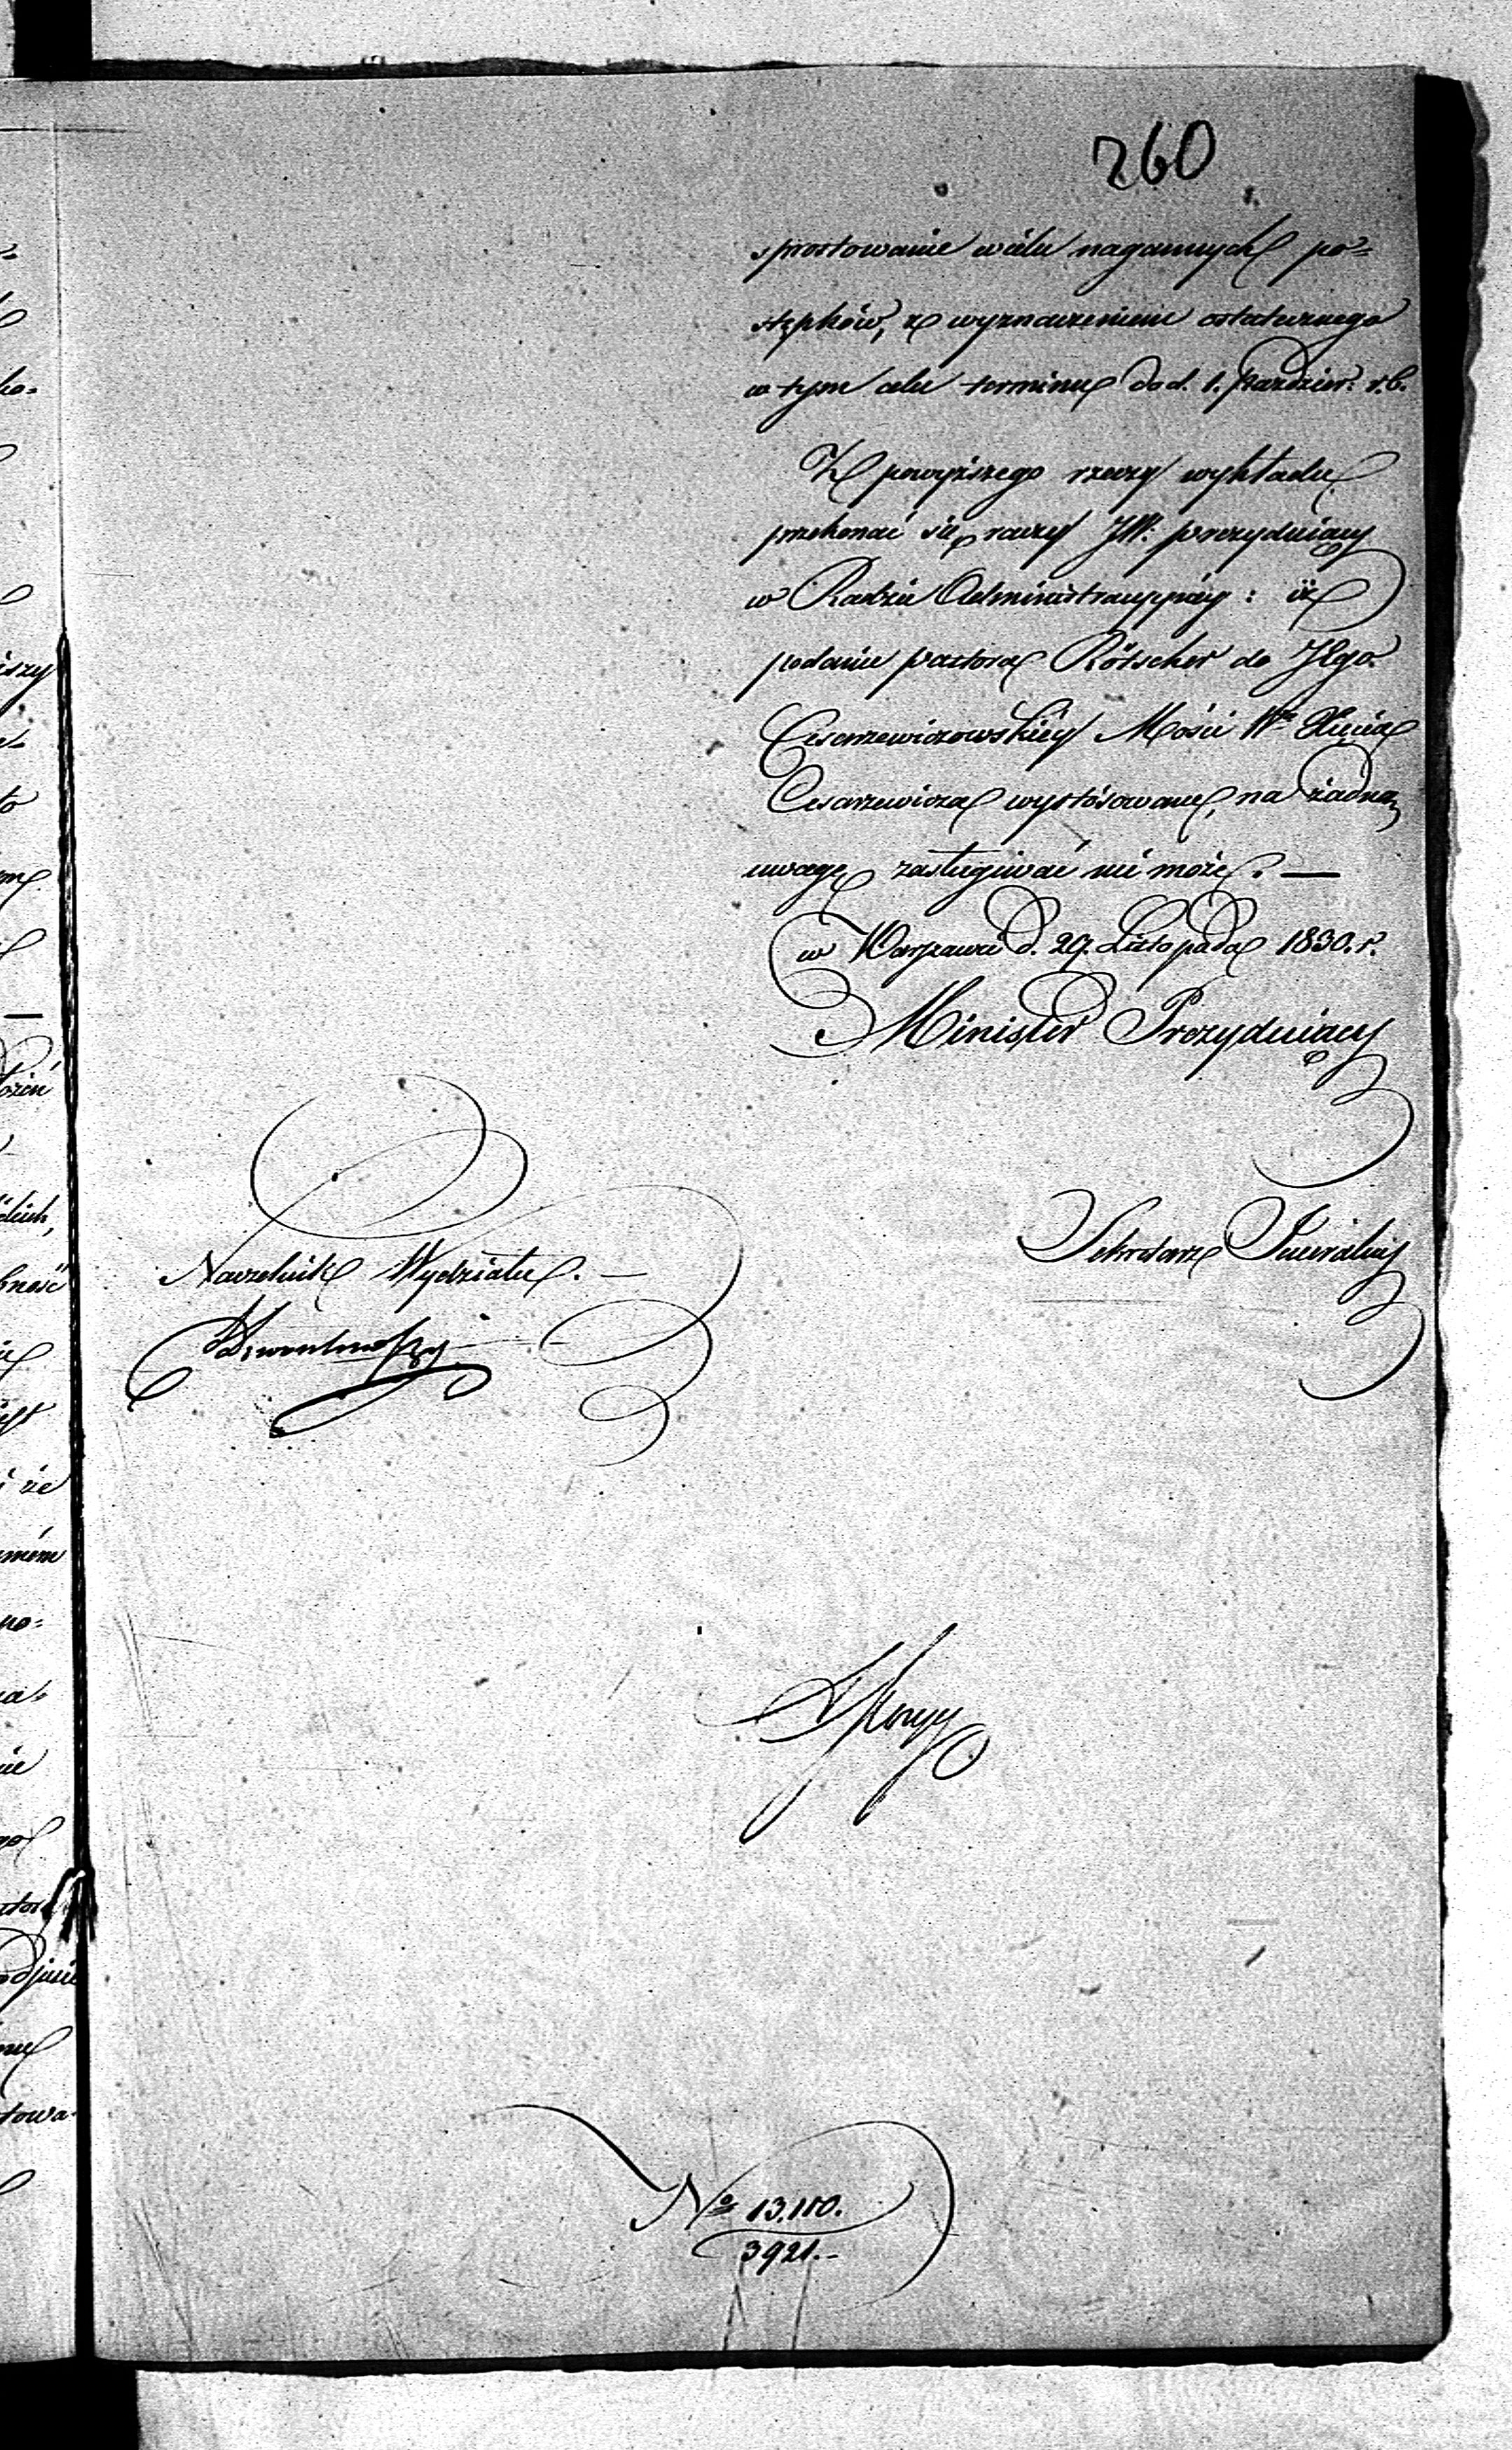 260
sprostowanie wielu nagannych po=
stępków, z wyznaczeniem ostatecznego
w tym celu terminu do d. 1. Paździer: r.b.
Z powyższego rzeczy wykładu
przekonać się raczy JW: prezyduiący
w Radzie Administracyinéy: iż
podanie pastora Rötscher do Jego
Cesarzewiczowskiéy Mości Wgo Xięcia
Cesarzewicza wystósowane, na żadną
uwagę zasługiwać nie może. —
w Warszawie d. 29. Listopada 1830. r.
Minister Prezyduiący
Sekretarz Jeneralny
Naczelnik Wydziału. —
No 13,110.
3921.-